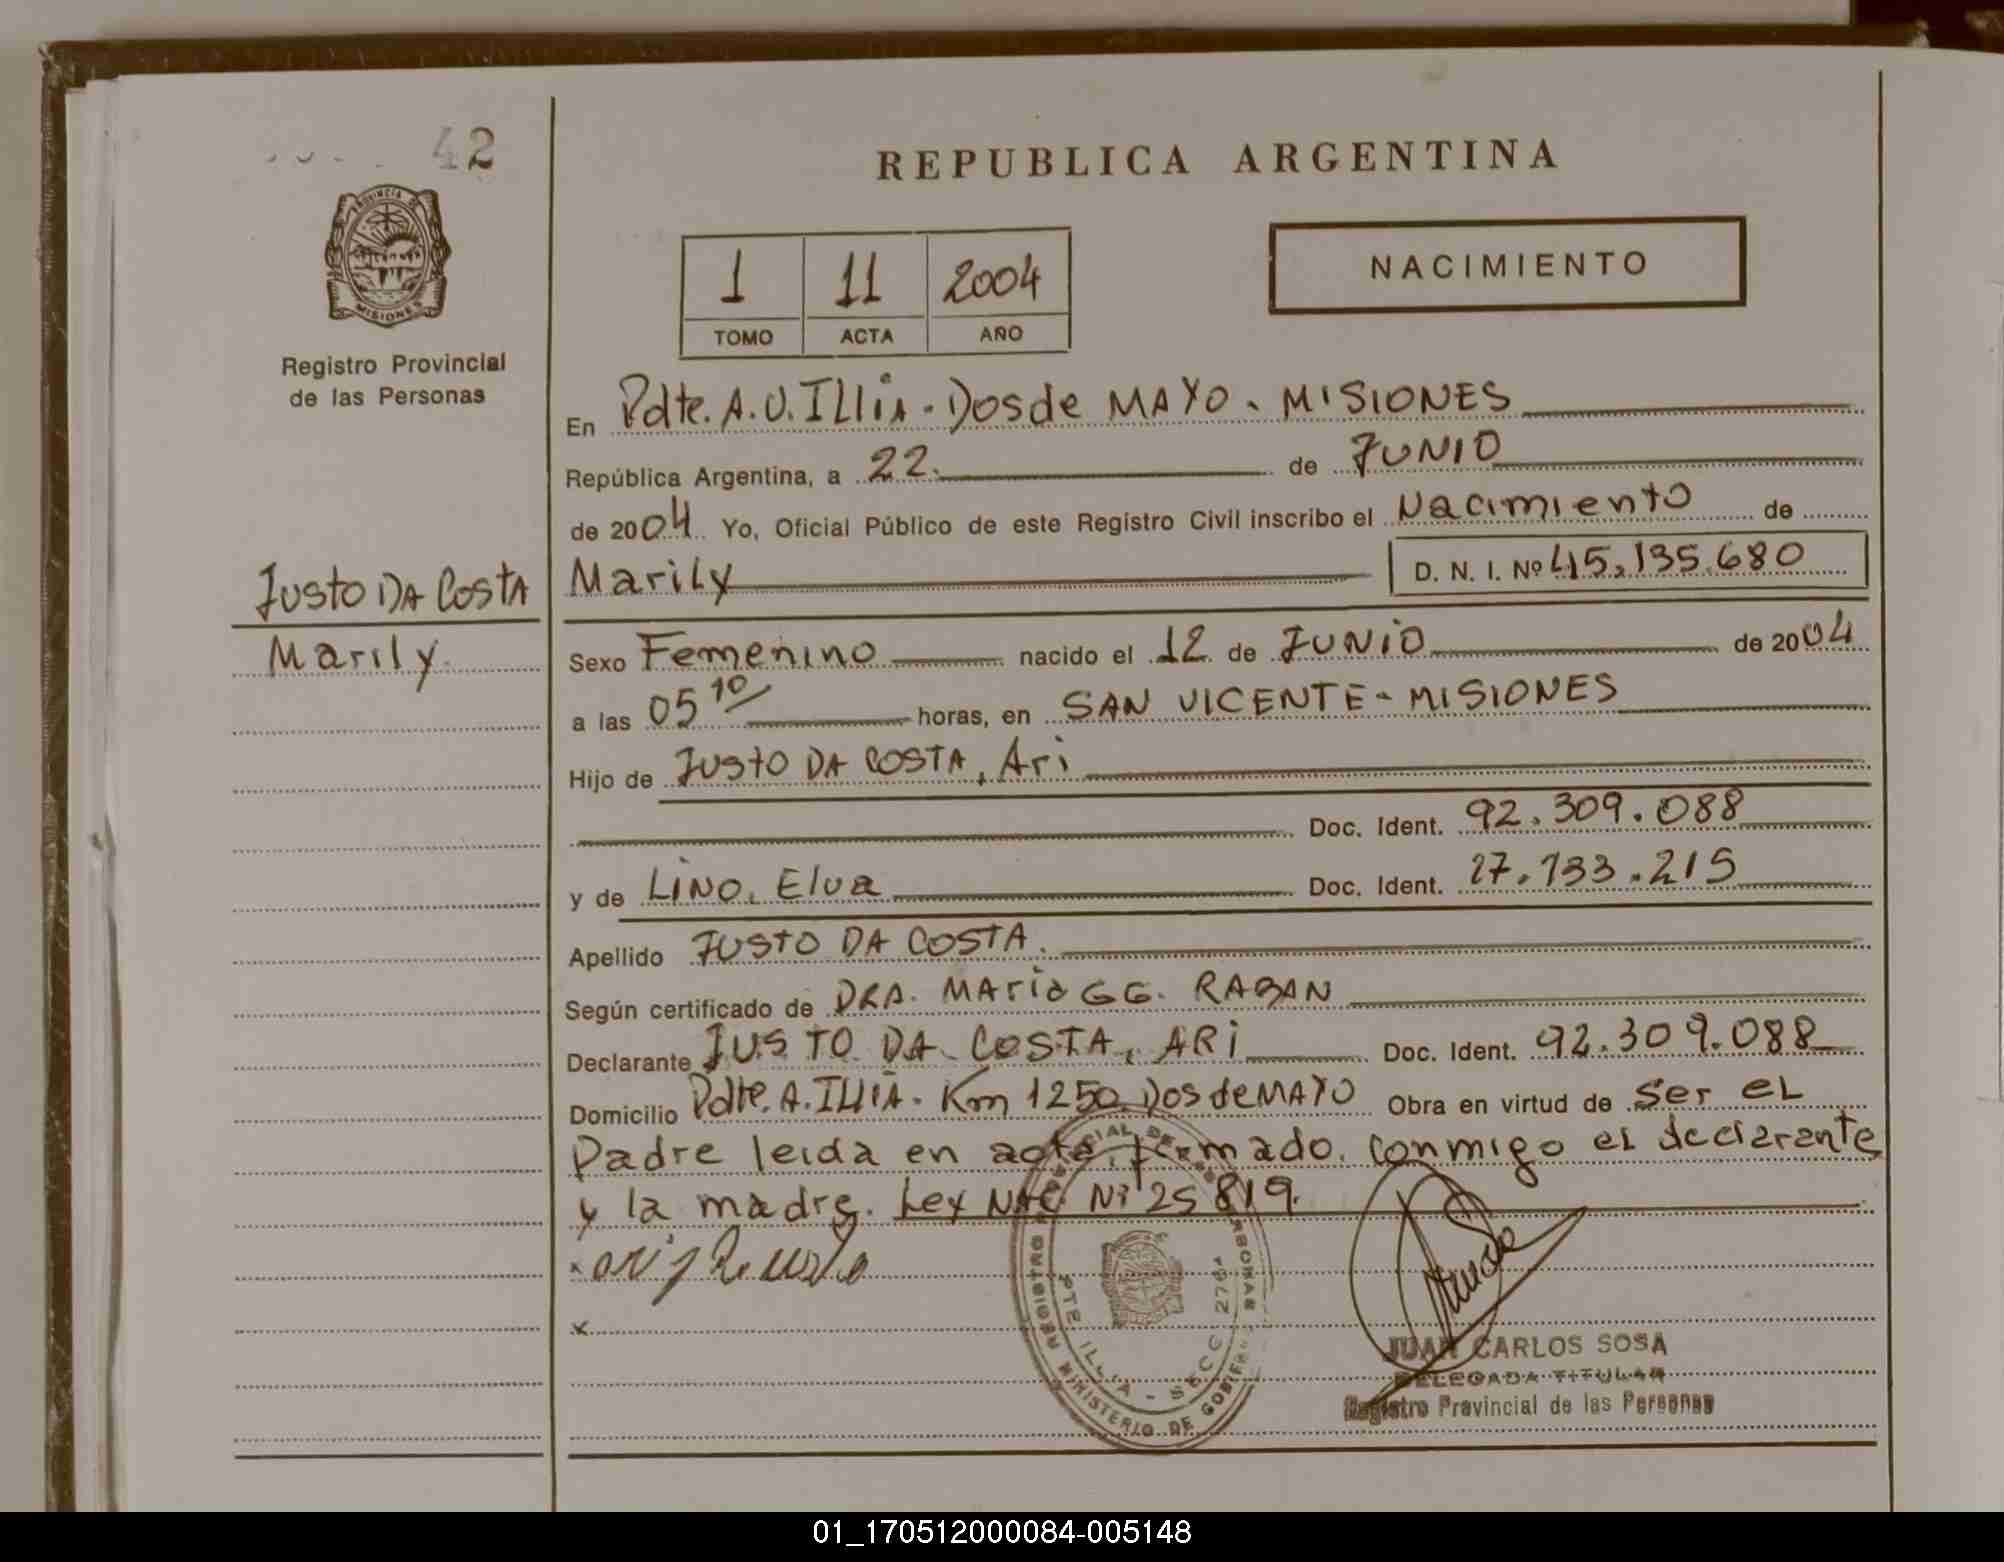 42
PROVINCIA DE
MISIONES
Registro Provincial
de las Personas
REPUBLICA ARGENTINA
1 11 2004
TOMO ACTA AÑO
NACIMIENTO
En Pdte. A.U. Illia - Dos de MAYO - MISIONES
República Argentina, a 22. de JUNIO
de 2004 Yo, Oficial Público de este Registro Civil inscribo el Nacimiento de
Marily D. N. I. Nº 45.135.680
Justo DA Costa
Marily.
Sexo Femenino nacido el 12 de JUNIO de 2004
a las 05 10 horas, en SAN VICENTE - MISIONES
Hijo de Justo DA COSTA, Ari
Doc. Ident. 92.309.088
y de Lino, Elva Doc. Ident. 27.133.215
Apellido JUSTO DA COSTA.
Según certificado de DRA. Maria GG. RABAN
Declarante JUSTO DA COSTA, ARi Doc. Ident. 92.309.088
Domicilio Pdte. A. Illia. Km 1250 Dos de MAYO Obra en virtud de ser el
Padre leida en acta, firmado conmigo el declarante
y la madre. Ley NAC. Nº 25819.
x
x
REGISTRO PROVINCIAL DE LAS PERSONAS
MINISTERIO DE GOBIERNO
PTE ILLIA - SECC 276ª
JUAN CARLOS SOSA
DELEGADA TITULAR
Registro Provincial de las Personas
01_170512000084-005148